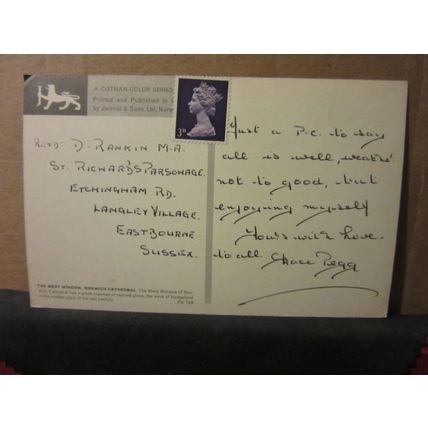 A COTMAN-COLOR SERIES
Printed and Published in
by Jarrold & Sons Ltd, Norw
3D
REVD: D. RANKIN M.A.
ST. RICHARD'S PARSONAGE.
ETCHINGHAM RD.
LANGLEY VILLAGE.
EASTBOURNE
SUSSEX.
Just a P.C. to say
all is well, weather
not to good, but
enjoying myself.
Yours with love
to all. Grace Pegg
THE WEST WINDOW, NORWICH CATHEDRAL. The West Window of Nor-
wich Cathedral has a great expanse of stained glass, the work of Hedgeland
in the middle years of the last century.